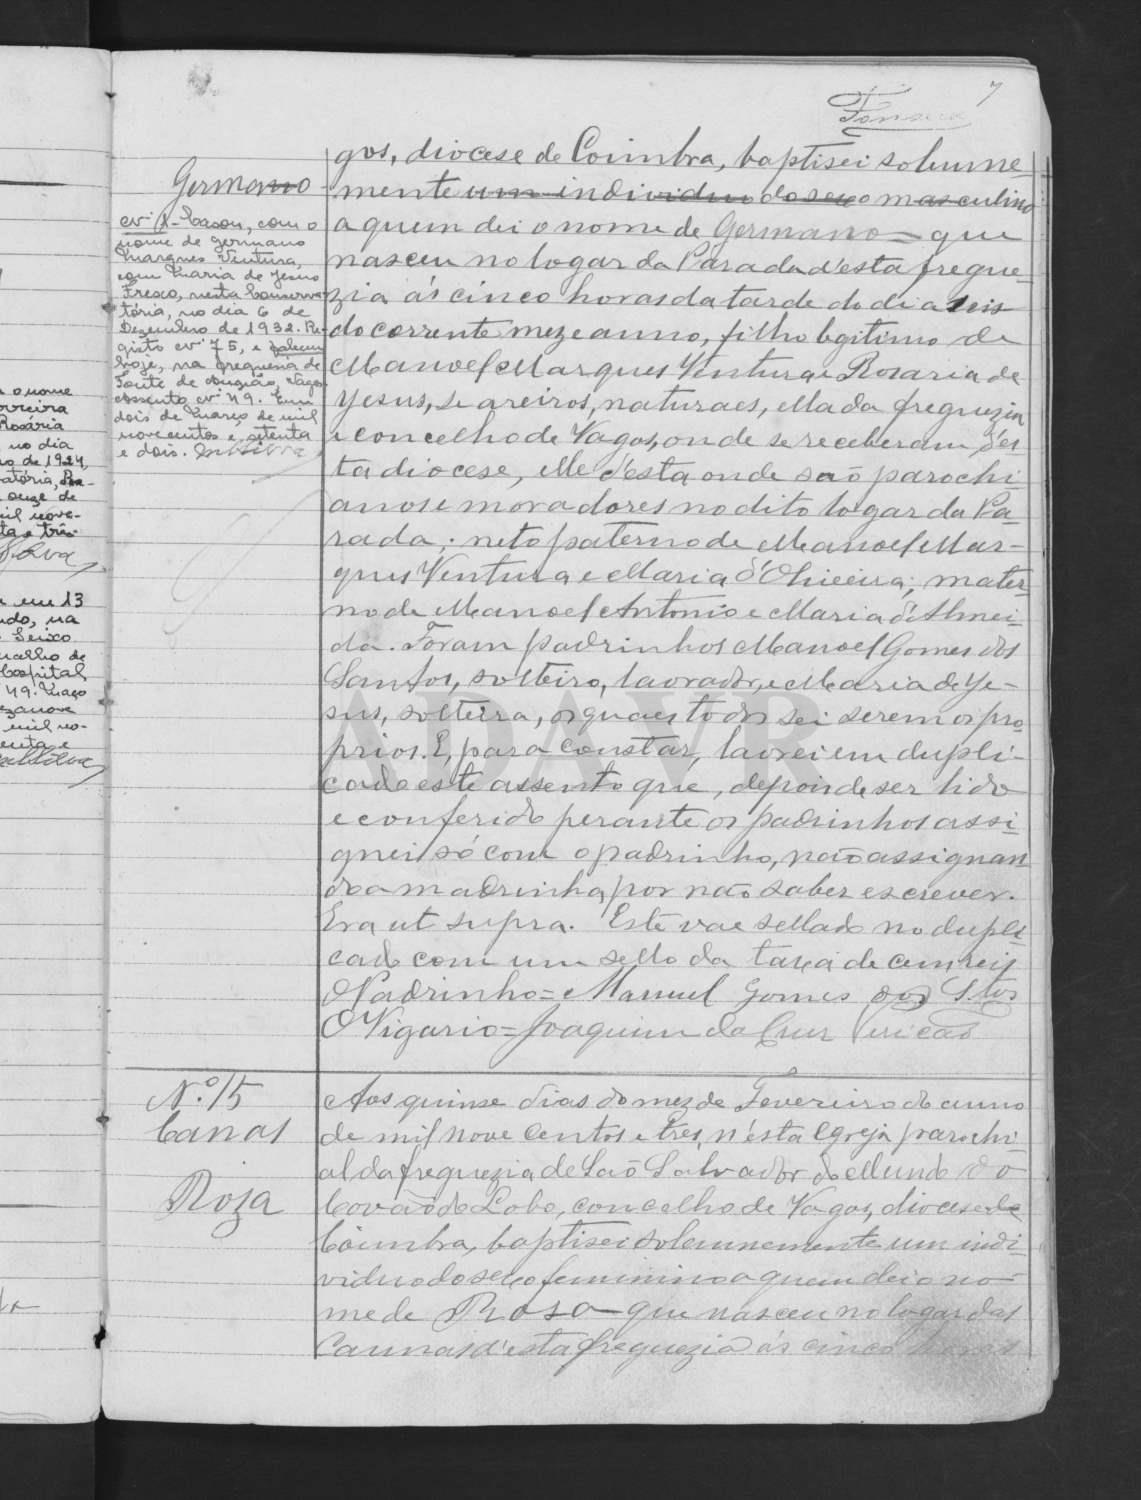 7
Fonseca
gos, diocese de Coimbra, baptisei solemne
mente um individuo do sexo masculino
a quem dei o nome de Germano = que
nasceu no logar da Parada d'esta fregue-
zia ás cinco horas da tarde do dia seis
do corrente mez e anno, filho legitimo de
Manoel Marques Ventura e Rosaria de
Jesus, seareiros, naturaes, ella da freguezia
e concelho de Vagos, onde se receberam d'es
ta diocese, elle d'esta onde são parochi-
anos e moradores no dito logar da Pa-
rada; neto paterno de Manoel Mar-
ques Ventura e Maria d'Oliveira; mater-
no de Manoel Antonio e Maria d'Almei-
da. Foram padrinhos Manoel Gomes dos
Santos, solteiro, lavrador, e Maria de Je-
sus, solteira, os quaes todos sei serem os pro
prios. E, para constar, lavrei em dupli-
cado este assento que, depois de ser lido
e conferido perante os padrinhos assi-
gnei só com o padrinho, não assignan
do a madrinha por não saber escrever.
Era ut supra. Este vae sellado no dupli-
cado com um sello da taxa de cem reis
O Padrinho = Manuel Gomes dos Stos
O Vigario = Joaquim da Cruz
Germano
Nº 1 - Casou, com o
nome de Germano
Marques Ventura,
com Maria de Jesus
Fresco, nesta Conserva-
tória, no dia 6 de
Dezembro de 1932. Re-
gisto nº 75, e faleceu
hoje, na freguesia de
Fonte de Angião, Vagos
assento nº 49. Em
dois de Março de mil
novecentos e setenta
e dois.
N.º 15
Canas
Roza
Aos quinse dias do mez de Fevereiro do anno
de mil nove centos e tres, n'esta Egreja parochi-
al da freguezia de São Salvador do Mundo do
Covão do Lobo, concelho de Vagos, diocese de
Coimbra, baptisei solemnemente um indi-
viduo do sexo feminino a quem dei o no-
me de Rosa que nasceu no logar das
Cannas d'esta freguezia ás cinco horas
o nome
Rosaria
no dia
de 1924,
onze de
mil nove-
e três
em 13
na
Seixo
Hospital
49. Março
ezanove
mil no-
enta e
ADAVR